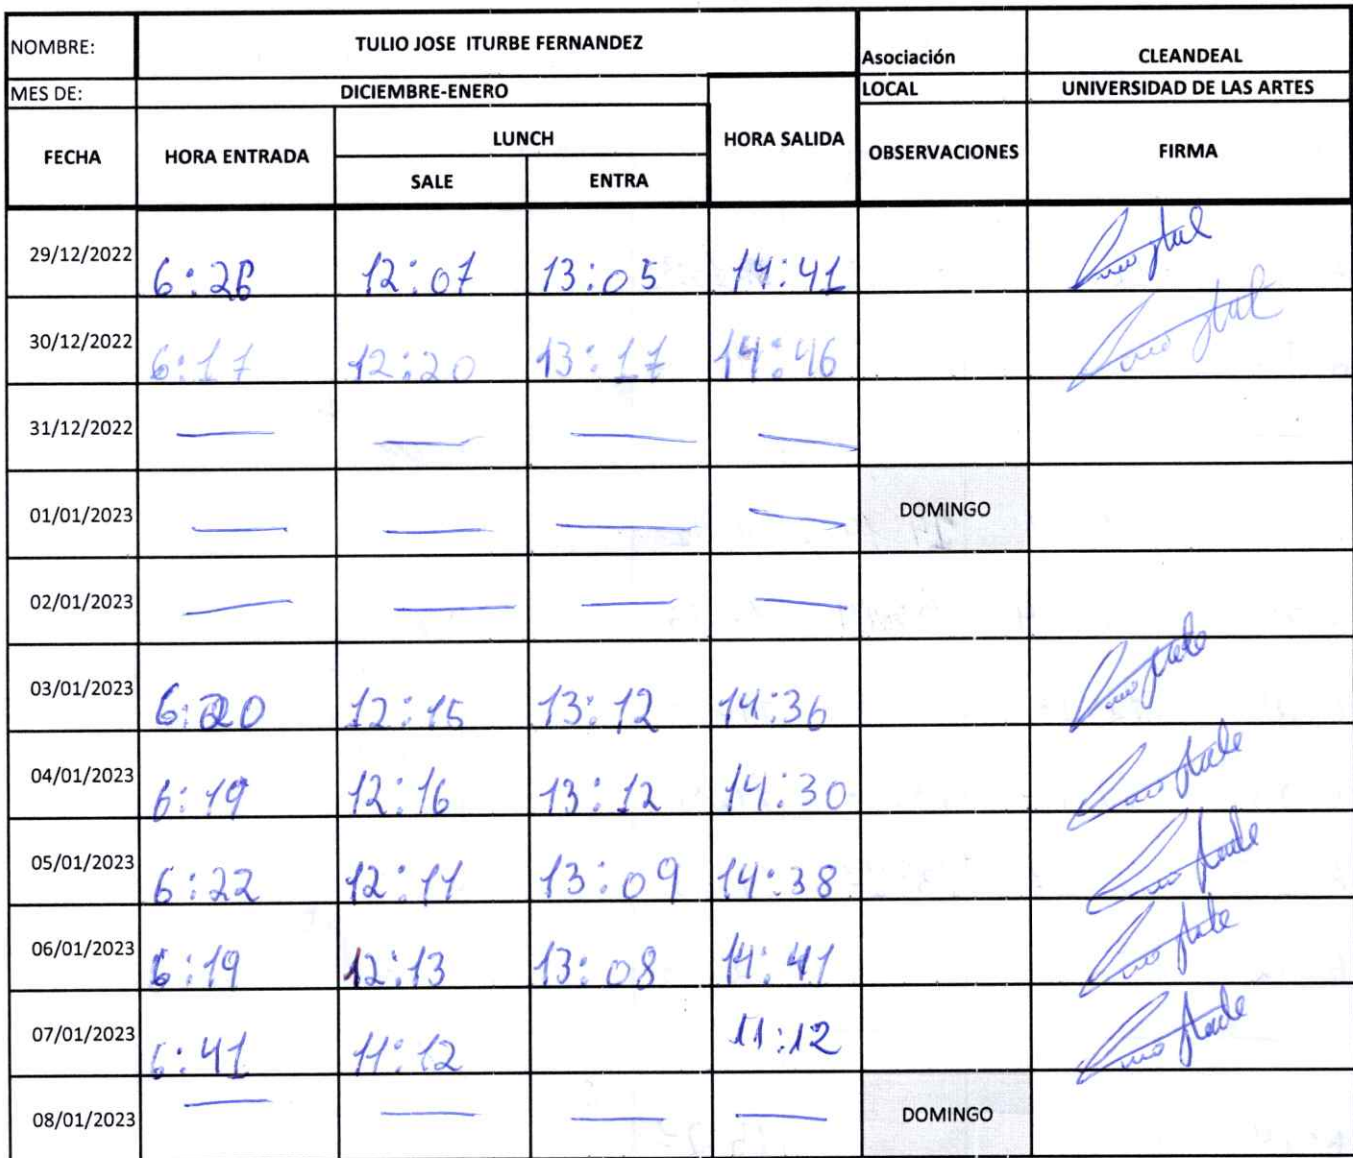 NOMBRE: TULIO JOSE ITURBE FERNANDEZ Asociación CLEANDEAL
MES DE: DICIEMBRE-ENERO LOCAL UNIVERSIDAD DE LAS ARTES
FECHA HORA ENTRADA LUNCH HORA SALIDA OBSERVACIONES FIRMA
SALE ENTRA
29/12/2022 12:07 13:05 14:41
30/12/2022 6:17 12:20 13:17 14:46
31/12/2022 — — — —
01/01/2023 — — — — DOMINGO
02/01/2023 — — — —
03/01/2023 6:20 12:15 13:12 14:36
04/01/2023 6:19 12:16 13:12 14:30
05/01/2023 6:22 12:11 13:09 14:38
06/01/2023 6:19 12:13 13:08 14:41
07/01/2023 6:41 11:12 11:12
08/01/2023 — — — — DOMINGO